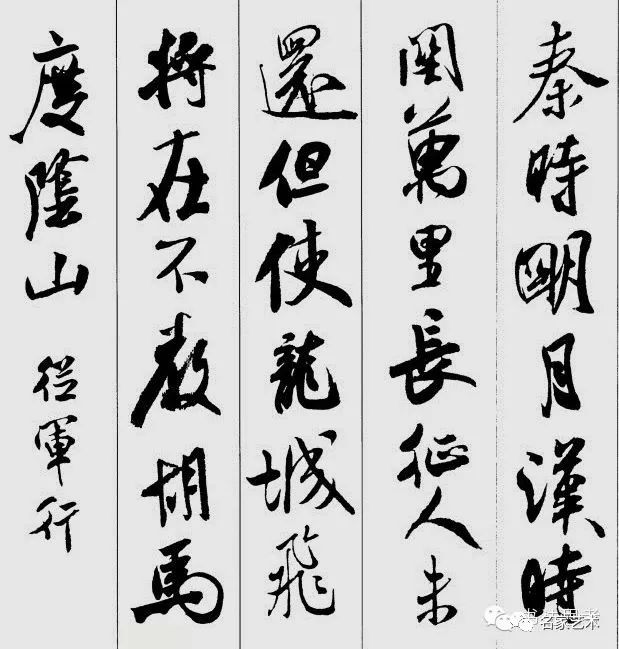 秦時明月漢時
関萬里長征人未
還但使龍城飛
將在不教胡馬
度陰山 從軍行
名家艺术